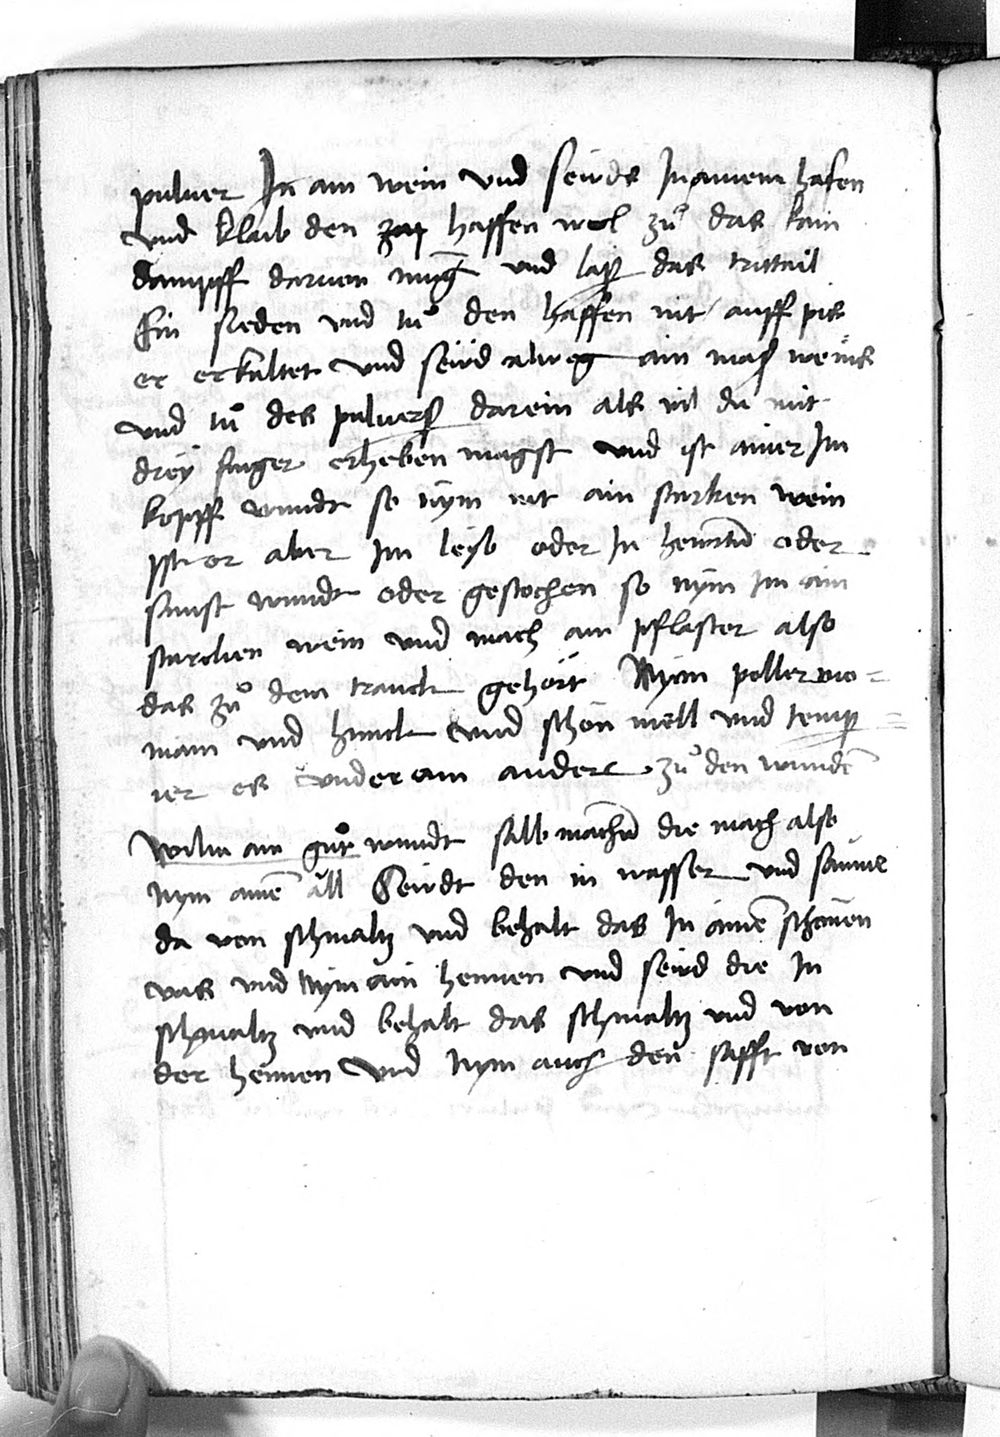 pulver In ain wein vnd seüds In ainem hafen
vnd klaib den zap haffen wol zů das kain
dampff daruon müg vnd laß das trittail
Ein sieden vnd tů den haffen nit auff pis
er erkaltet vnd seüd alweg ain maß weins
vnd tů des pulvers darein als vil du mit
drey finger erheben magst vnd ist ainer Im
kopff wundt so nym nit ain starken wein
Ist er aber Im leyb oder In oder
sunst wundt oder gestochen so nym Im ain
starcken wein vnd mach ain pflaster also
das zů dem tranck gehört Nym poller mo=
niam vnd hunck vnd schön mell vnd temp=
ier es vnder ain ander zů den wunden
Wiltu ain gůt wundt salb machen die mach also
Nym ainē all Seüdt den in wasser vnd saüme
da von schmaltz vnd behalt das In ainē schönen
vas vnd Nym ain hennen vnd seüd die In
schmaltz vnd behalt das schmaltz vnd von
der hennen vnd Nym auch den safft von